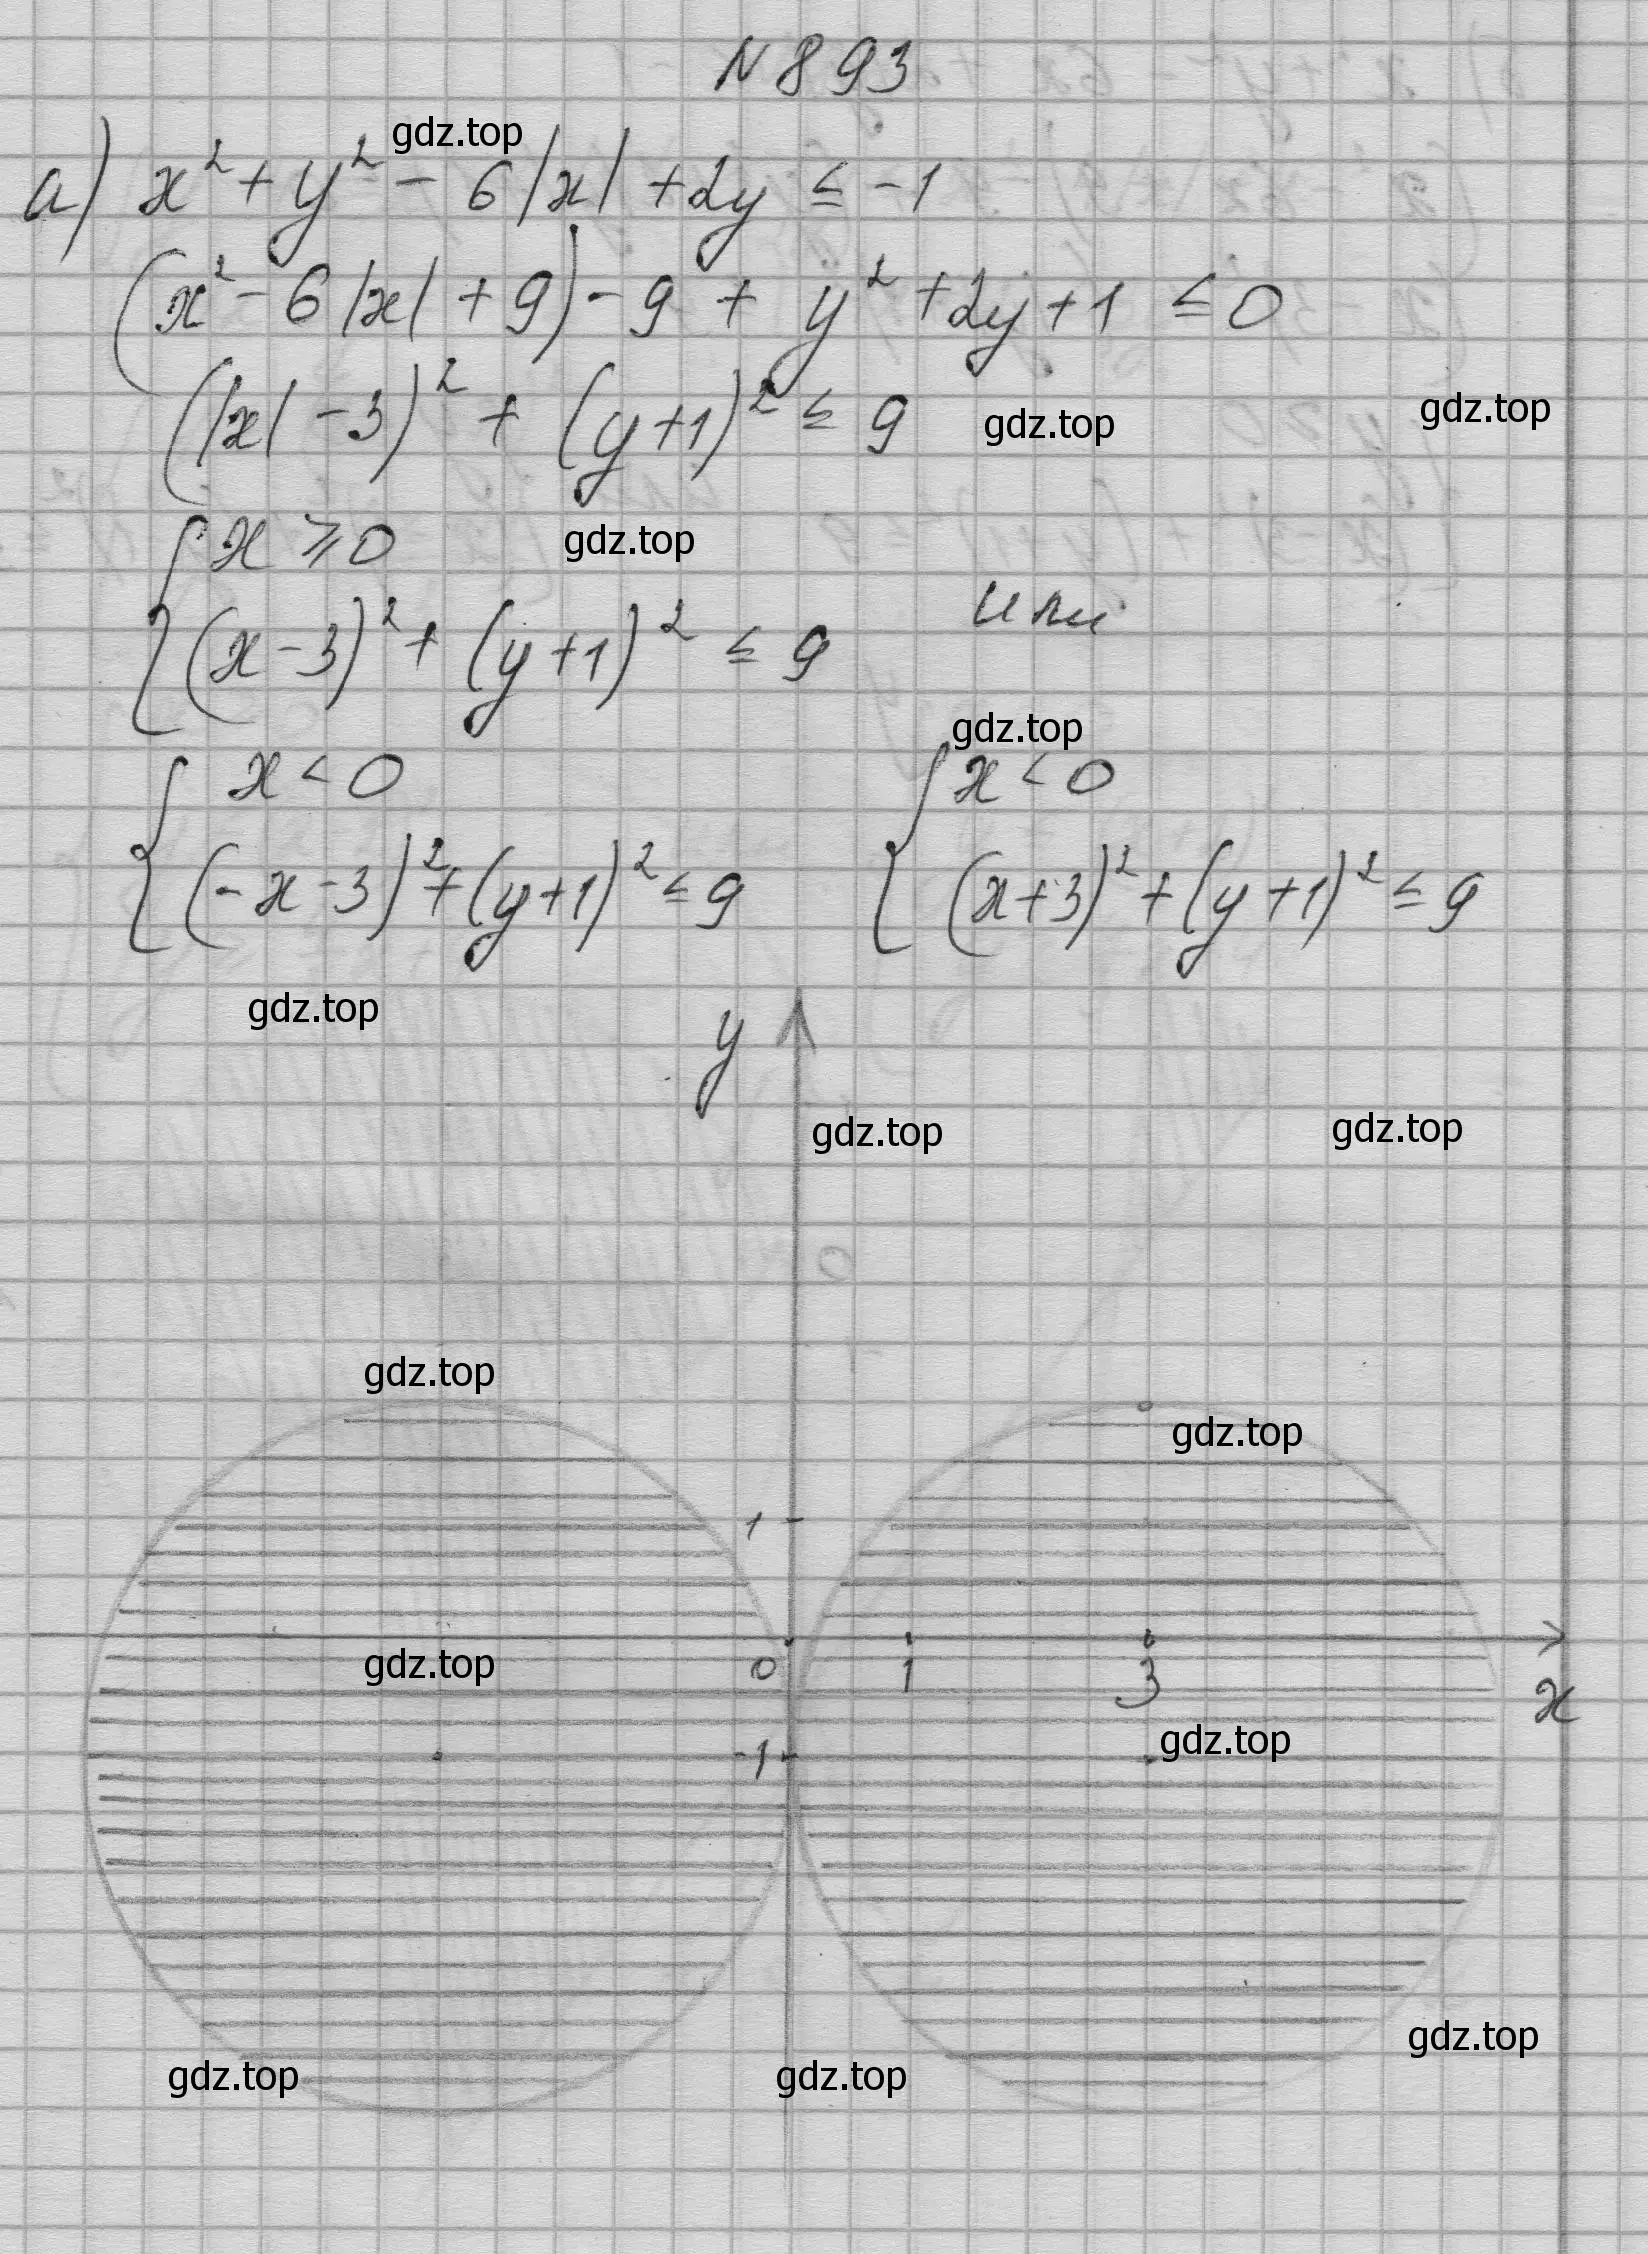 N 893
gdz.top
а) x² + y² - 6|x| + 2y ≤ -1
(x² - 6|x| + 9) - 9 + y² + 2y + 1 ≤ 0
(|x| - 3)² + (y + 1)² ≤ 9
gdz.top
gdz.top
{ x ⩾ 0
gdz.top
{ (x - 3)² + (y + 1)² ≤ 9
или
gdz.top
{ x < 0
{ (-x - 3)² + (y + 1)² ≤ 9
{ x < 0
{ (x + 3)² + (y + 1)² ≤ 9
gdz.top
y
gdz.top
gdz.top
gdz.top
gdz.top
1
gdz.top
0
1
3
x
-1
gdz.top
gdz.top
gdz.top
gdz.top